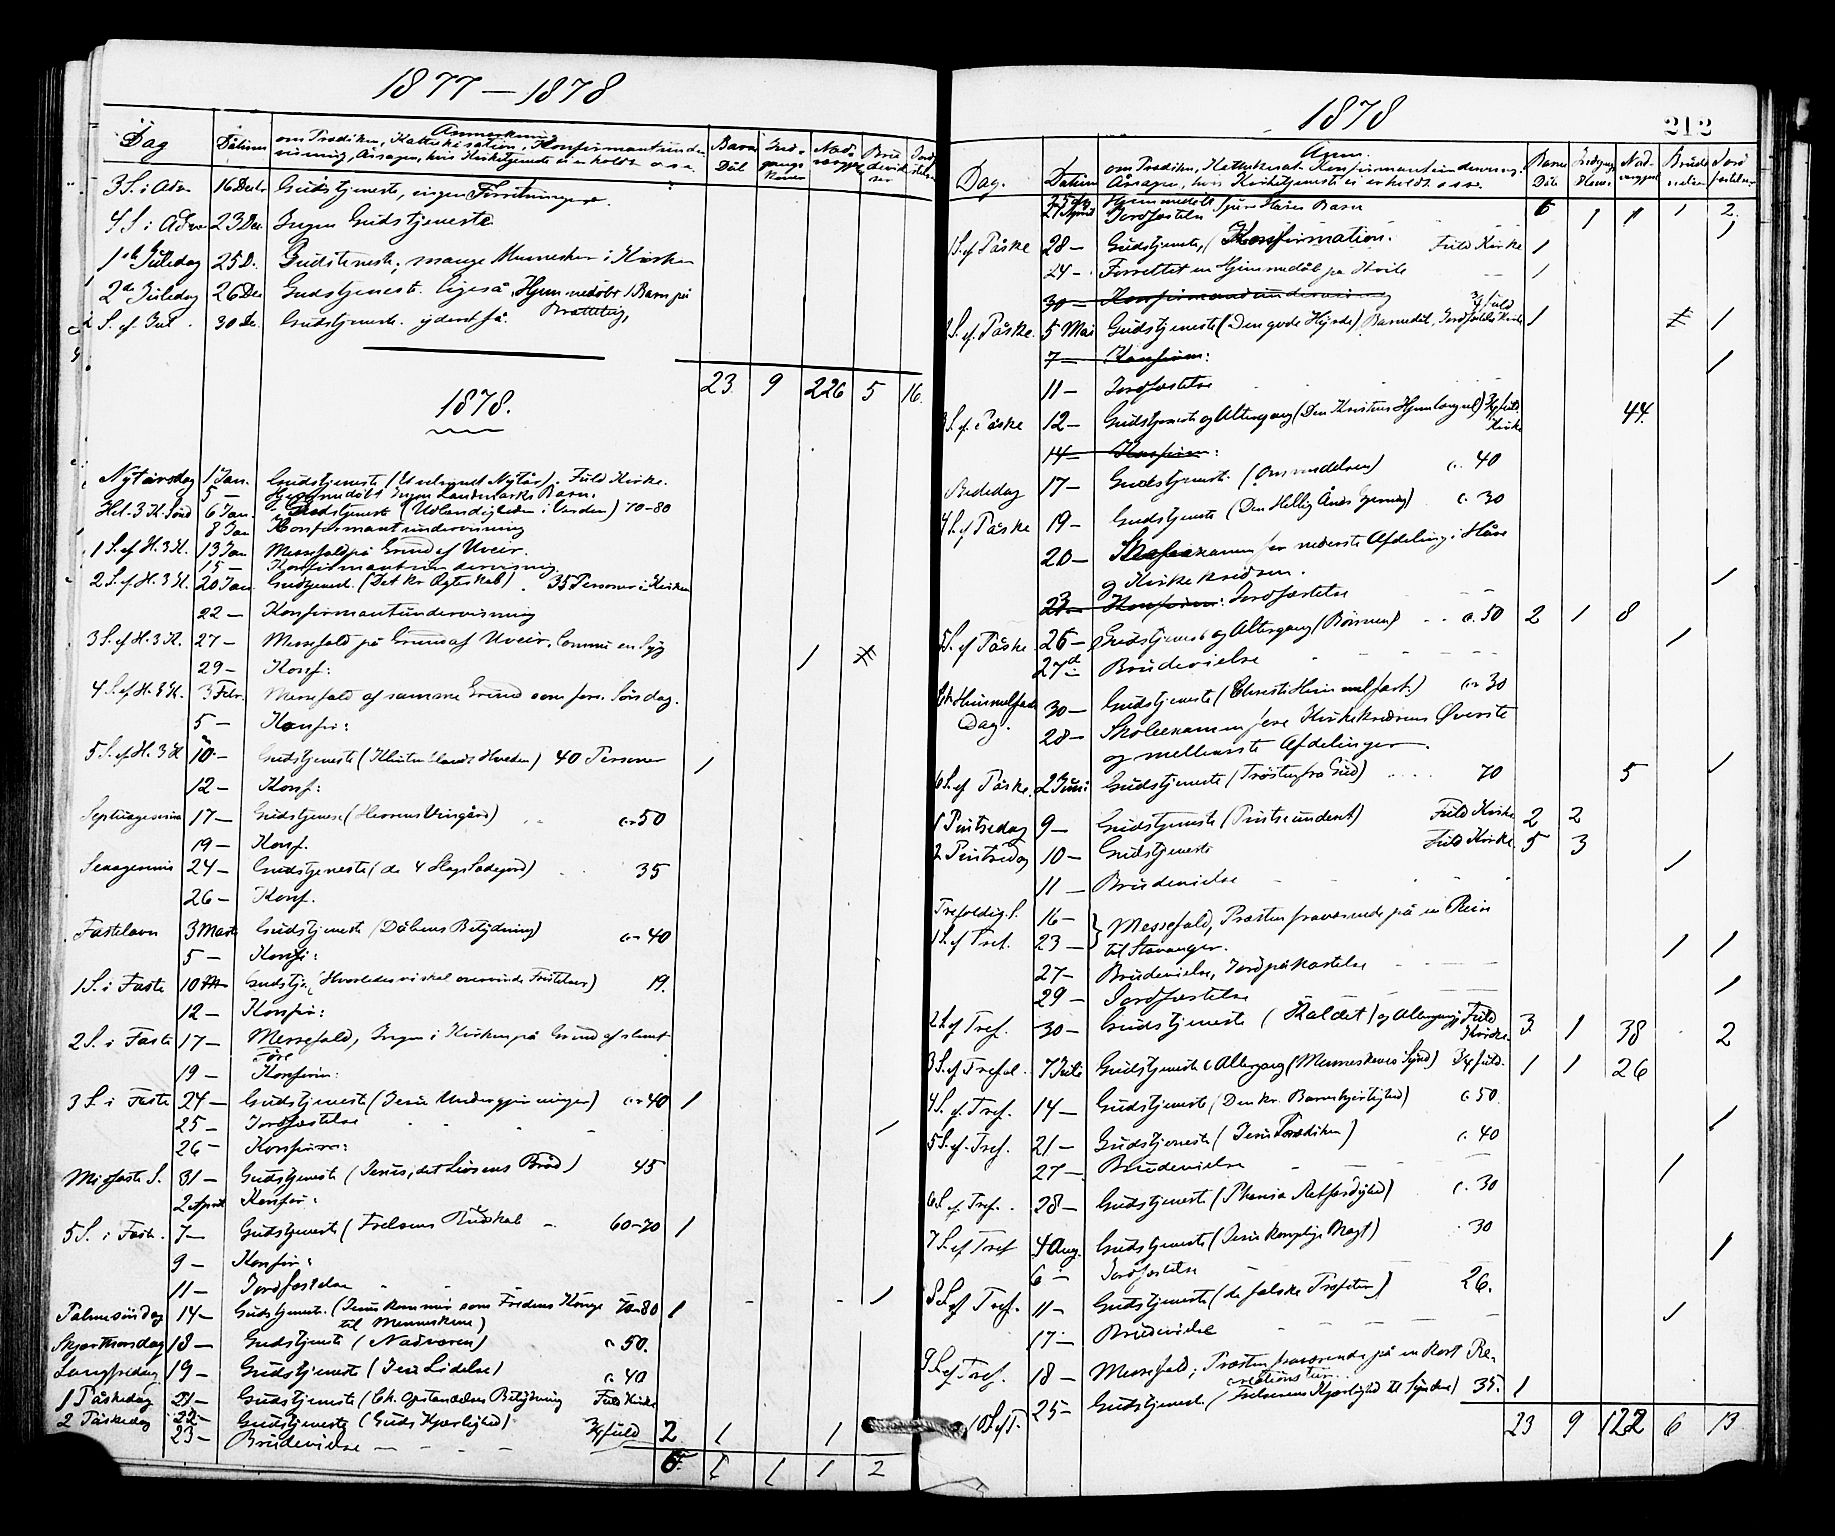 1877–1878
Dag Datum Anmerkning
om Prædiken, Katekisation, Konfirmantunder-
visning, Årsagen, hvis Kirketjeneste ei er holdt o.s.v. Barne Dåb Nad
3 S. i Adv. 16 Decbr Gudstjeneste, ingen Forretninger.
4 S. i Adv. 23 Dec Ingen Gudstjeneste
1ste Juledag 25 D. Gudstjeneste, mange Mennesker i Kirken
2den Juledag 26 Dec Gudstjeneste. ligeså. Hjemmedøbt 1 Barn på
S. ef. Jul 30 De. Gudstjeneste.
23 9 226 5 16.
1878.
Nytårsdag 1 Jan. Gudstjeneste (Velsignet Nytår). Fuld Kirke.
5 – Hjemmedøbt Barn.
Hel. 3 K. Sønd 6 Jan. Gudstjeneste (i Verden) 70–80
8 Jan Konfirmantundervisning
1 S. ef. H. 3 K. 13 Jan Messefald på Grund af Uveir.
15 – Konfirmantundervisning
2 S. ef. H. 3 K. 20 Jan Gudstjenest. (Det kr. Ægteskab). 35 Personer i Kirken
22 – Konfirmantundervisning
3 S. ef H. 3 K. 27 – Messefald på Grund af Uveir. en Syg 1
29 – Konf:
4 S. ef H. 3 K. 3 Febr. Messefald af samme Grund som forr. Søndag.
5 – Konfir:
5 S. ef H. 3 K 10 – Gudstjeneste (Klinten blandt Hveden) 40 Personer 1
12 – Konf:
Septuagesima 17 – Gudstjenese (Herrens Vingård) ca 50
19 – Konf.
Sexagesima 24 – Gudstjeneste (de 4 Slags Sædejord) 35
26 – Konf.
Fastelavn 3 Marts Gudstjeneste (Dåbens Betydning) ca 40
5 – Konfi:
1 S. i Faste 10 Gudstje. (Hvorledes vi skal overvinde Fristelser) 19.
12 – Konfir:
2 S. i Faste 17 – Messefald, Ingen i Kirken på Grund af slemt
Føre
19 – Konfirm:
3 S. i Faste 24 – Gudstjeneste (Jesu Undergjerninger) ca 40 1
25 – Jordfæstelse 1
26 – Konfirm:
Midfaste S. 31 – Gudstjeneste (Jesus, det Livsens Brød) 45
2 April Konfir:
5 S. i Faste. 7 – Gudstjeneste (Frelsens Budskab 60–70 1
9 – Konfir:
11 – Jordfæstelse 1
Palmesøndag 14 – Gudstjeneste. (Jesus kommer som Fredens Konge 70–80 1
til Menneskene)
Skjærthorsdag 18 – Gudstjeneste (Nadveren) c 50.
Langfredag 19 – Gudstjeneste (Jesu Lidelse) c 40
1 Påskedag 21 – Gudstjeneste (Ch. Opstandelses Betydning Fuld Kirke
2 Påskedag 22 – Gudstjeneste (Guds Kjærlighed) 3/4 fuld 2 1 1
23 – Brudevielse
6. 1 1 1 2
1878
212
Dag. Datum Anm.
om Prædiken, Katekisat. Konfirmantundervisning.
Årsagen, hvis Kirketjeneste ei er holdt o.s.v. Barne Dåb
Hjemmedøbt Barn
27 April Jordfæstelse 6 1 1 1 2
1 S. ef Påske 28 – Gudstjeneste, (Konfirmation. Fuld Kirke 1
24 – Forrettet en Hjemmedåb på 1
30 – Konfirmandundervisning
2 S. ef. Påske. 5 Mai Gudstjeneste (Den gode Hyrde) Barnedåb, Jordfæstelse 3/4 fuld Kirke 1 1
7 – Konfirm:
11 – Jordfæstelse 1
3 S. ef. Påske 12 – Gudstjeneste og Altergang (Den Kristnes Hjemlængsel) 3/4 fuld. Kirke 44.
14 – Konfirm:
Bededag 17 – Gudstjeneste. (Omvendelsen) c. 40
4 S. ef Påske 19 – Gudstjeneste (Den Hellig Ånds Gjerning) c. 30
20 – Skoleexamen for nederste Afdeling i
og Kirkekredsen.
23 – Konfirm: Jordfæstelse 1
5 S. ef Påske 26 – Gudstjeneste og Altergang (Bønnen) c. 50 2 1 8
27 – Brudevielse 1
Kr. Himmelfarts
Dag. 30 – Gudstjeneste (Christi Himmelfart.) ca 30
28 – Skoleexamen for Kirkekredsens Øverste
og mellemste Afdelinger.
6 S. ef Påske. 2 Juni Gudstjeneste (Trøsten fra Gud) 70 5 1
1 Pintsedag 9 – Gudstjeneste (Pintseunderet) Fuld Kirke 2 2
2 Pintsedag 10 – Gudstjeneste Fuld Kirke 5 3
11 – Brudevielse 1
Trefoldig. S. 16 – } Messefald, Præsten fraværende på en Reise
1 S. ef Tref. 23 – til Stavanger.
27 – Brudevielse, Jordpåkastelse 1 1
29 – Jordfæstelse 1
2 S. ef Tref. 30 – Gudstjeneste (Kaldet) og Altergang Fuld Kirke 3 1 38 2
3 S. ef Trefol. 7 Juli Gudstjeneste Altergang (Menneskenes Synd) 3/4 fuld. 1 1 26
4 S. ef. Tref. 14 – Gudstjeneste (Den kr. Barmhjertighed) c. 50.
5 S. ef. Tref. 21 – Gudstjeneste (Jesu Prædiken) c. 40 1
27 – Brudevielse 1
6 S. ef Tref. 28 – Gudstjeneste (Pharisæ Retfærdighed) c. 30
7 S. ef Tref 4 Aug. Gudstjeneste (Jesu kongelige Magt) 30
6 – Jordfæstelse 1
8 S. ef Tref. 11 – Gudstjeneste (de falske Profeter) 26.
17 – Brudevielse 1
9 S. ef Tref. 18 – Messefald; Præsten fraværende på en kort Re-
creationstur.
10 S. ef T. 25 – Gudstjenest. (Frelserens Kjærlighed til Syndere) 35. 1
23 9 122 6 13